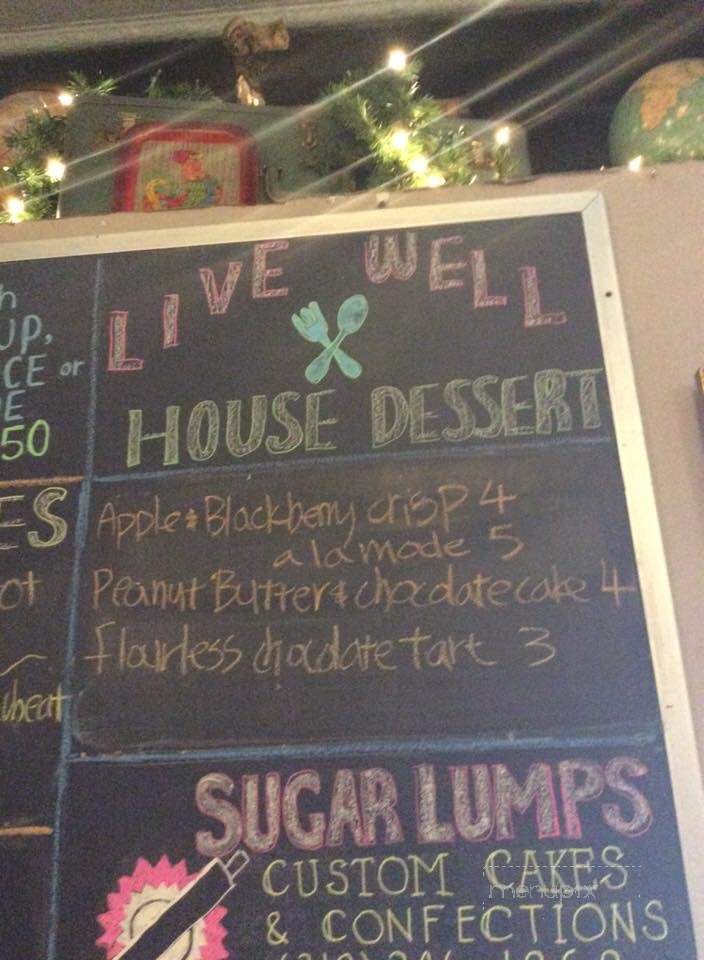 LIVE WELL
HOUSE DESSERT
Apple & Blackberry crisp 4
a la mode 5
Peanut Butter & chocolate cake 4
flourless chocolate tart 3
SUGAR LUMPS
CUSTOM CAKES
& CONFECTIONS
h
UP,
CE or
E
50
ES
ot
wheat
menupix